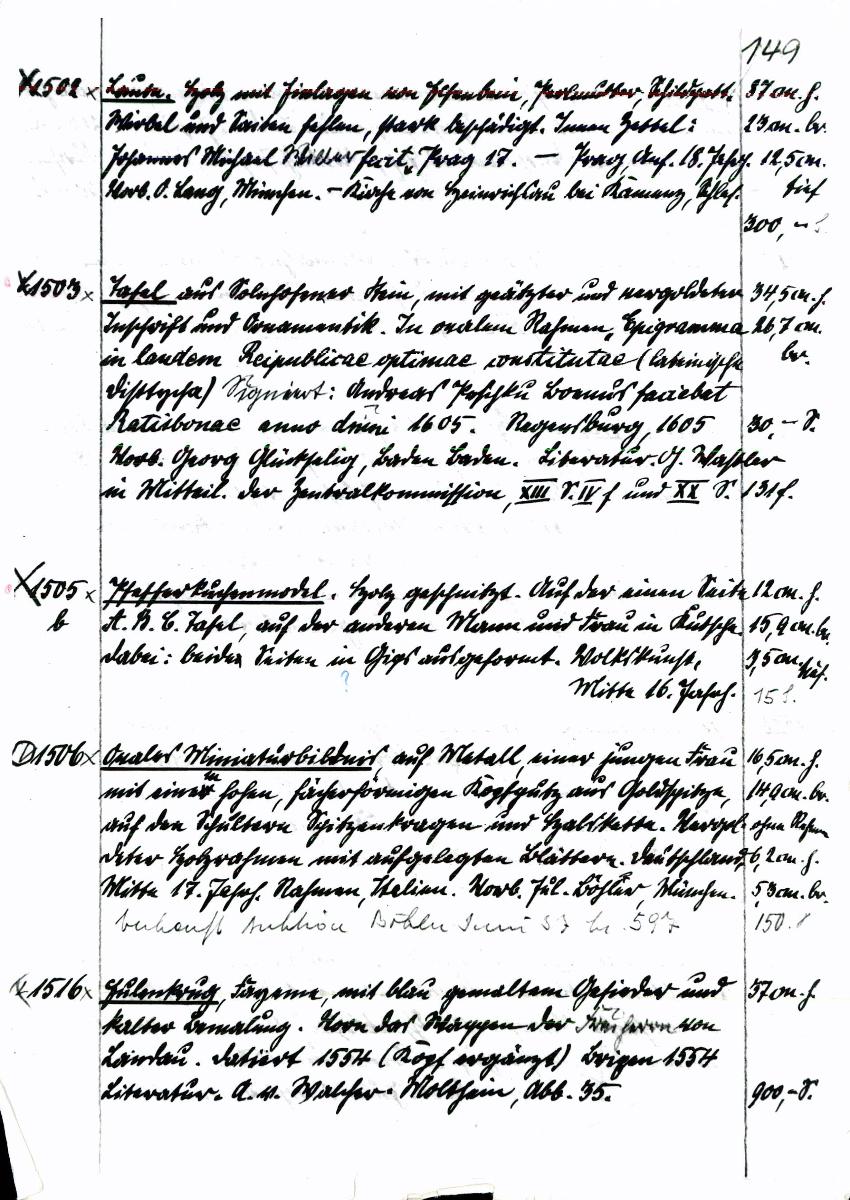 149
1502 x Laute. Holz mit Einlagen von Elfenbein, Perlmutter, Schildpatt. 37 cm. h.
Wirbel und Saiten fehlen, stark beschädigt. Innen Zettel: 23 cm. br.
Johannes Michael fecit, Prag 17. — Prag, Anf. 18. Jahrh. 12,5 cm.
Vorb. O. Lang, München. – Kirche von Heinrichsau bei Kamenz, Schles. tief
300,–
1503 x Tafel aus Solnhofener Stein, mit geätzter und vergoldeter 34,5 cm. h.
Inschrift und Ornamentik. In ovalem Rahmen, Epigramma 26,7 cm.
in laudem Reipublicae optimae constitutae (lateinische br.
Disticha) Signiert: Andreas Boemus faciebat
Ratisbonae anno dmni 1605. Regensburg, 1605 30,– S.
Vorb. Georg Glückselig, Baden Baden. Literatur. J. Wastler
in Mitteil. der Zentralkommission, XIII S. IV f und XX S. 131 f.
1505 x Pfefferkuchenmodel. Holz geschnitzt. Auf der einen Seite 12 cm. h.
b A. B. C. Tafel, auf der anderen Mann und Frau in Kutsche. 15,9 cm. br.
Dabei: beide Seiten in Gips ausgeformt. Volkskunst, 3,5 cm. tief.
?
Mitte 16. Jahrh. 15 S.
D 1506 x Ovales Miniaturbildnis auf Metall, einer jungen Frau 16,5 cm. h.
mit einem hohen, fächerförmigen Kopfputz aus Goldspitze, 14,9 cm. br.
auf den Schultern Spitzenkragen und Halskette. Vergol- ohne Rahmen
deter Holzrahmen mit aufgelegten Blättern. Deutschland, 6,2 cm. h.
Mitte 17. Jahrh. Rahmen, Italien. Vorb. Jul. Böhler, München. 5,3 cm. br.
verkauft Auktion Böhler Juni 37 Nr. 597 150.
1516 x Eulenkrug, Fayence, mit blau gemaltem Gefieder und 37 cm. h.
kalter Bemalung. Vorn das Wappen der Freiherrn von
Landau. Datiert 1554 (Kopf ergänzt) Brixen 1554
Literatur. A. v. Walcher-Molthein, Abb. 35. 900,– S.